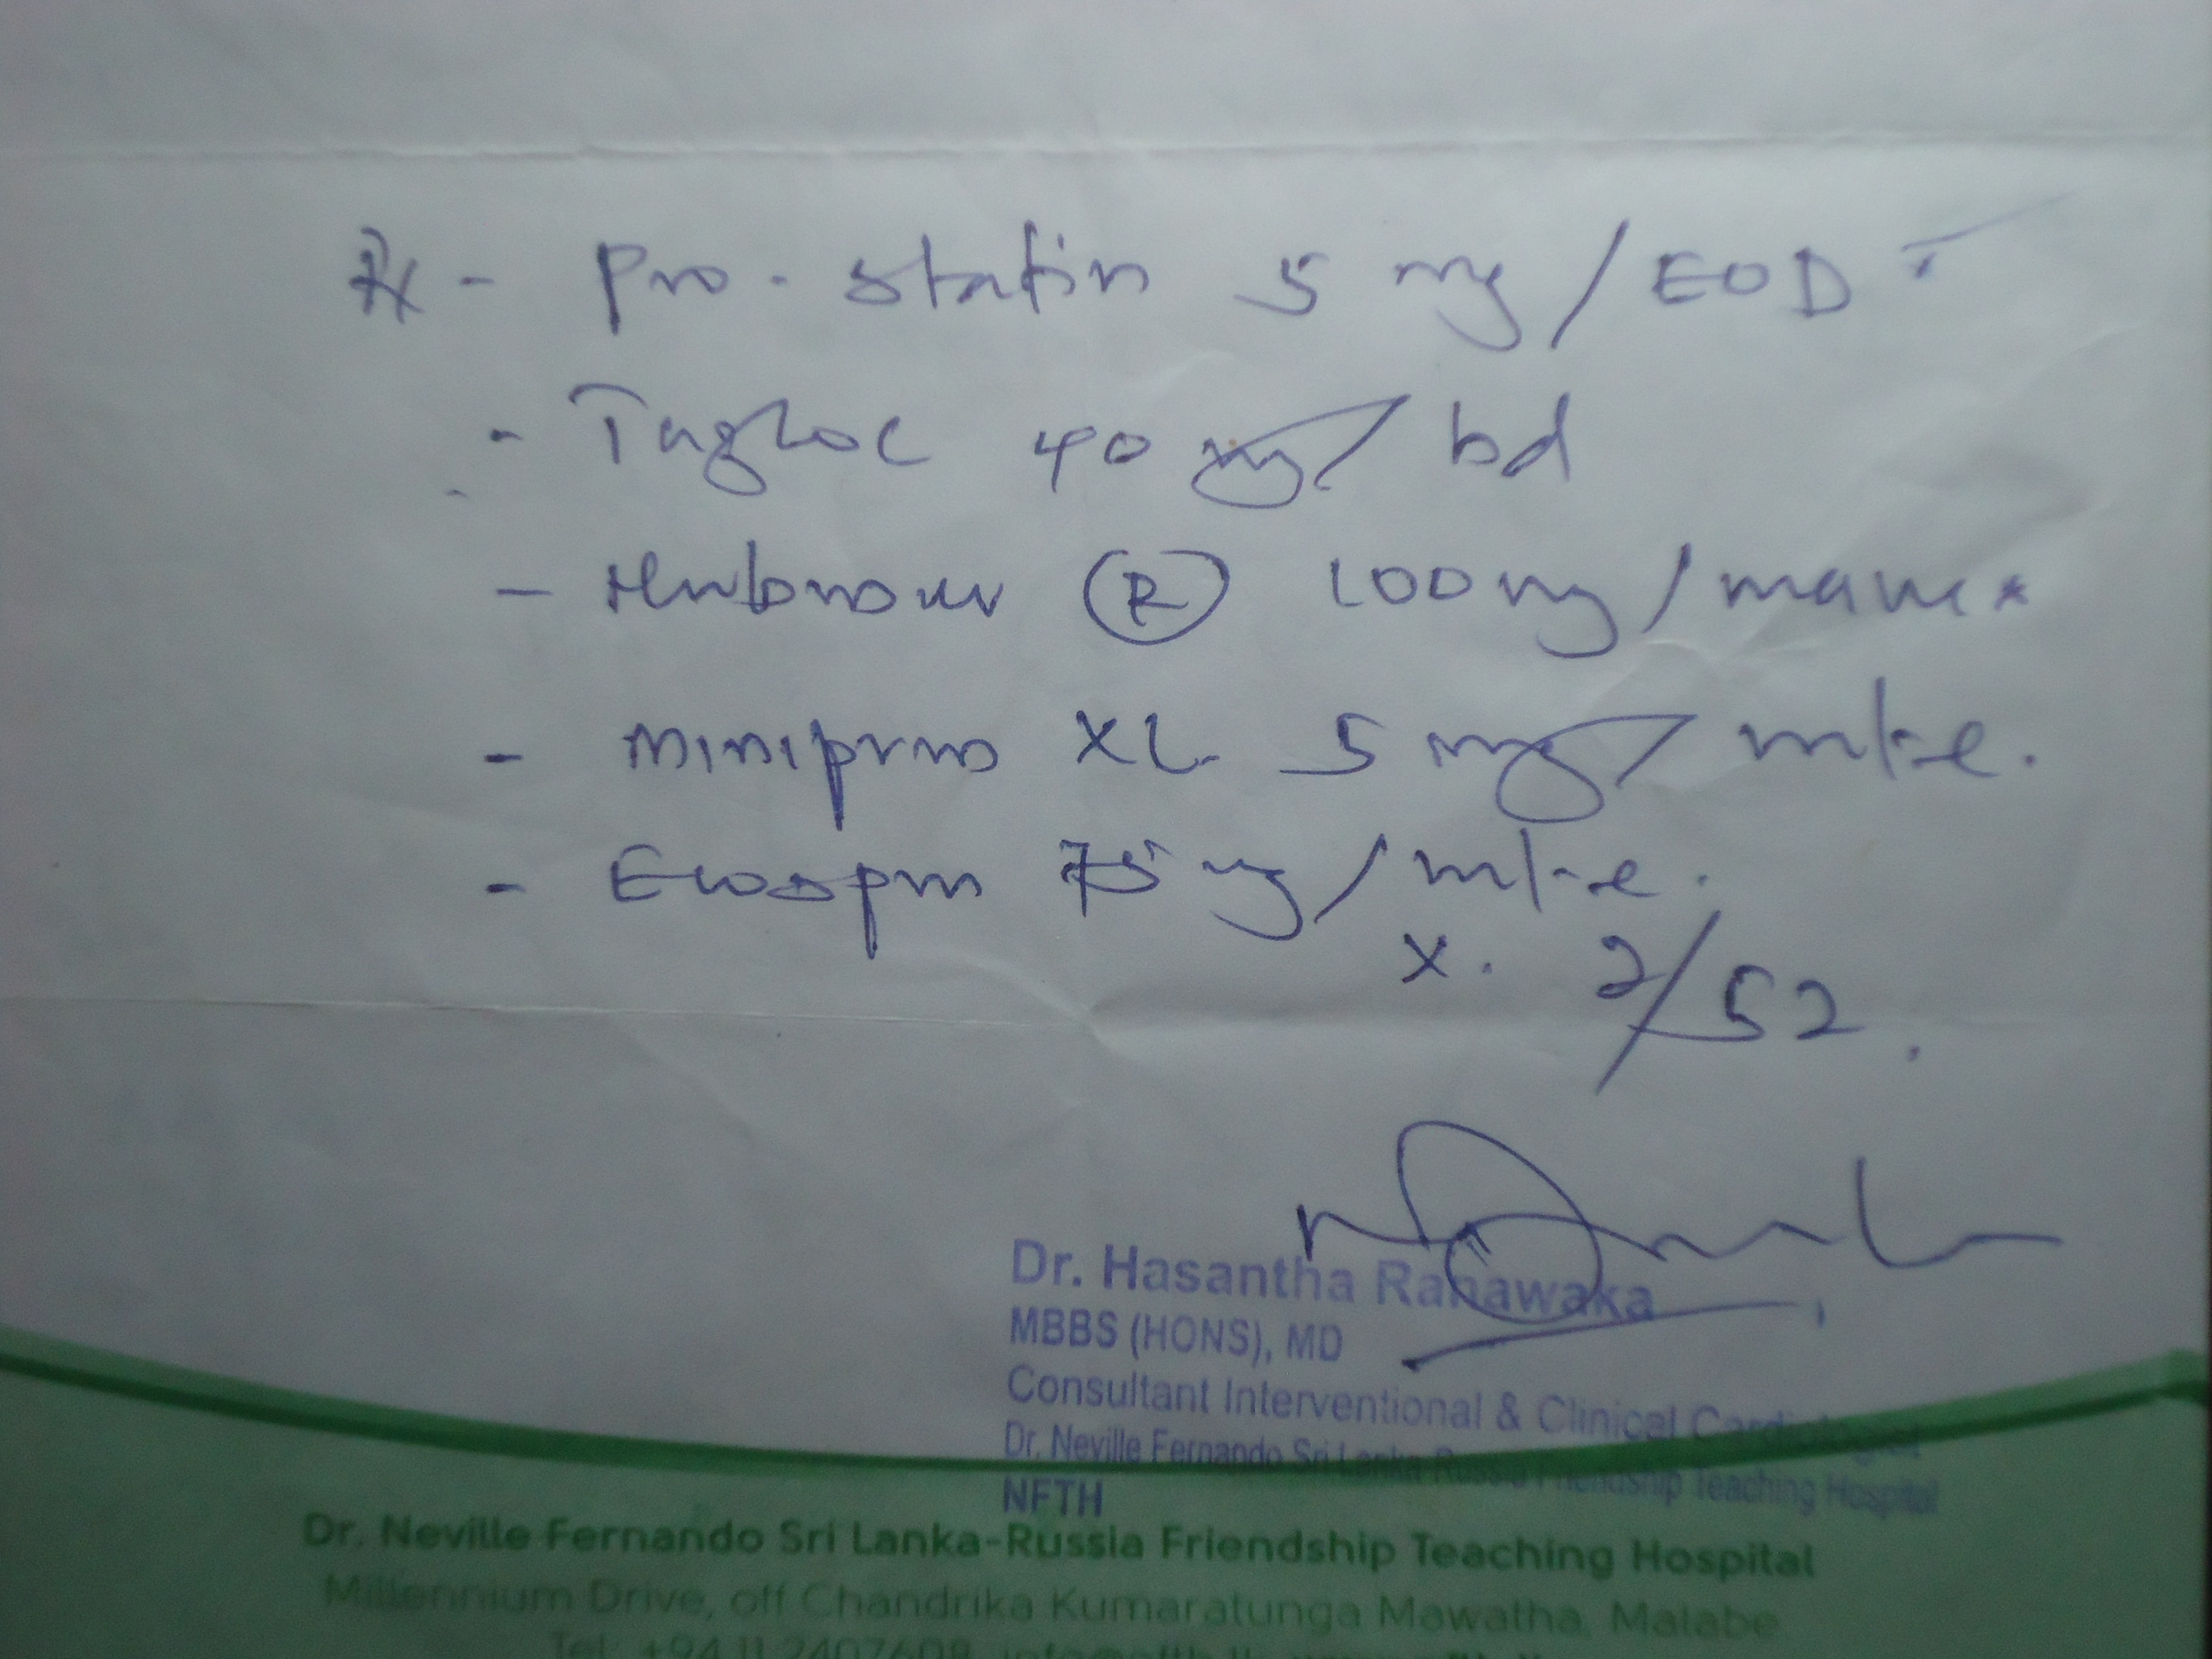 Rx - Pro-statin 5 mg / EOD
- 40 mg / bd
- (R) 100 mg / mane
- Minipress XL 5 mg / nocte.
- Ecosprin 75 mg / nocte.
x. 2/52.
Dr. Hasantha Ranawaka
MBBS (HONS), MD
Consultant Interventional & Clinical Cardiologist
Dr. Neville Fernando Sri Lanka Russia Friendship Teaching Hospital
NFTH
Dr. Neville Fernando Sri Lanka-Russia Friendship Teaching Hospital
Millennium Drive, off Chandrika Kumaratunga Mawatha, Malabe
Tel: +94 11 2407608